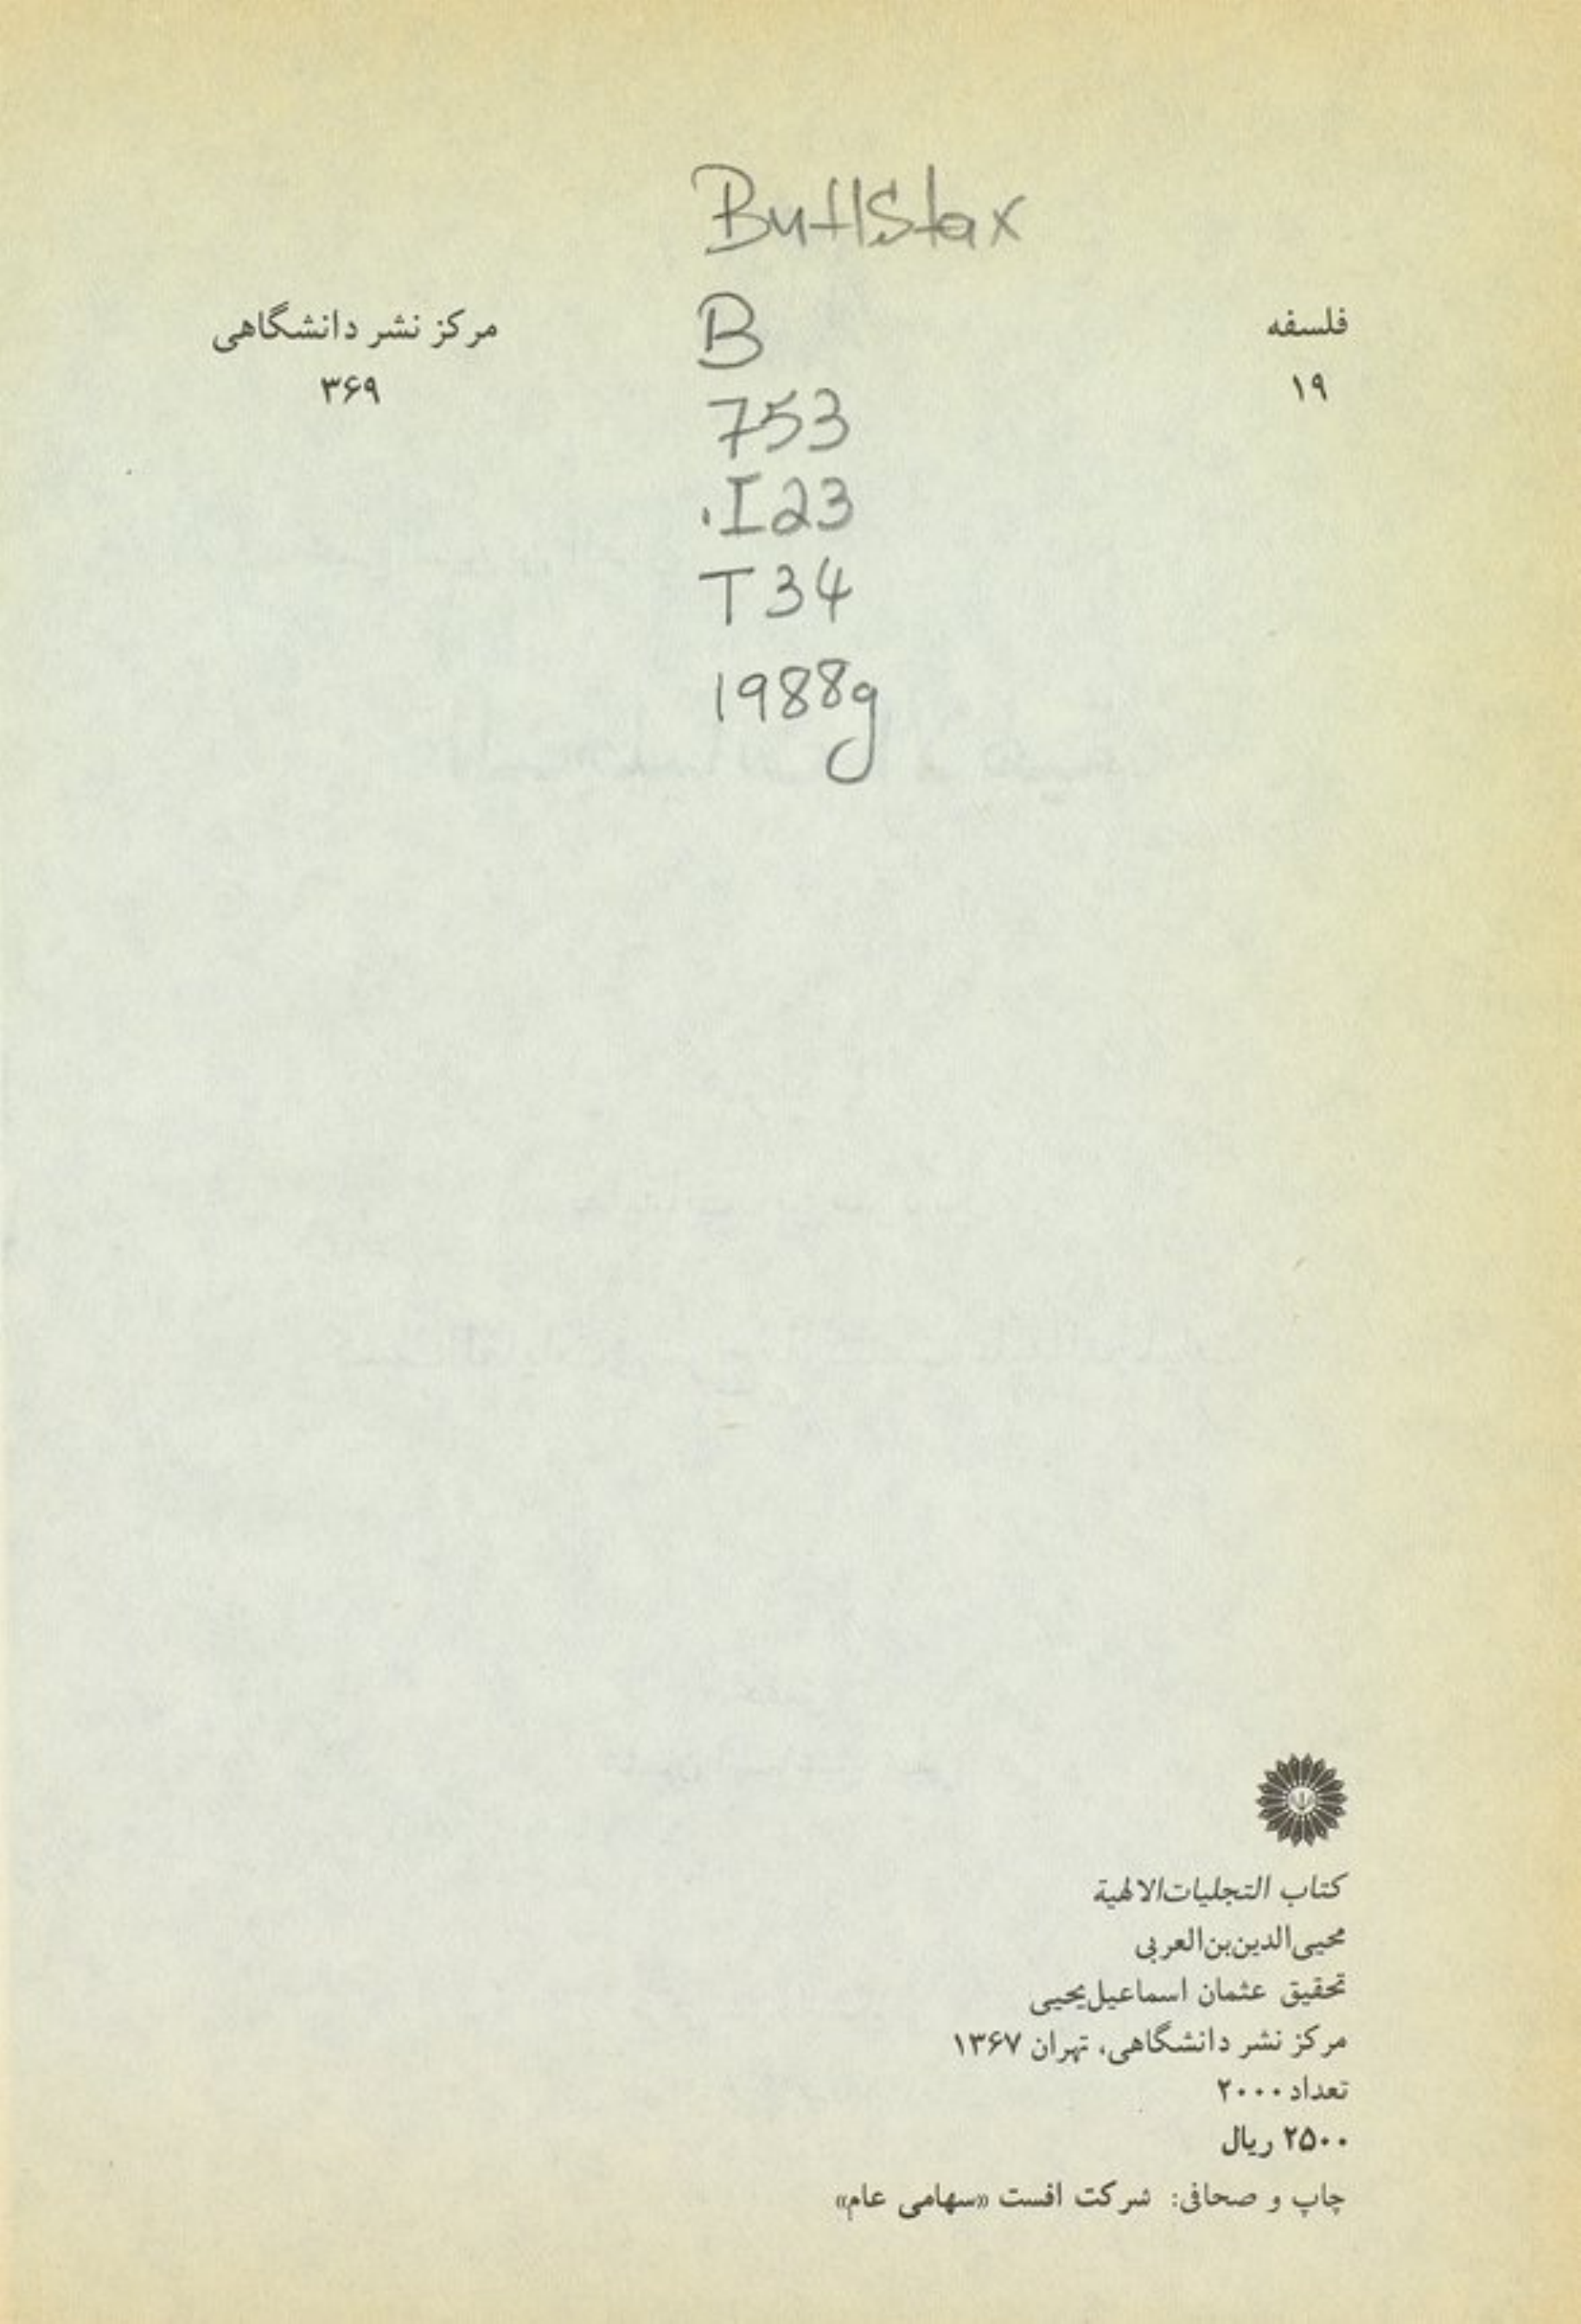 ButlStax
فلسفه
۱۹
B
753
.I23
T34
1988g
مرکز نشر دانشگاهی
۳۶۹
کتاب التجلیات‌الالهیة
محیی‌الدین‌بن‌العربی
تحقیق عثمان اسماعیل‌یحیی
مرکز نشر دانشگاهی، تهران ۱۳۶۷
تعداد ۲۰۰۰
۲۵۰۰ ریال
چاپ و صحافی: شرکت افست «سهامی عام»